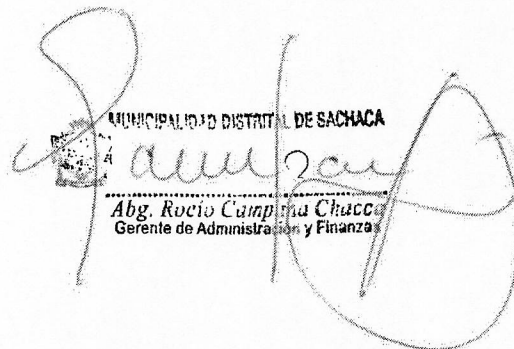 MUNICIPALIDAD DISTRITAL DE SACHACA
Abg. Rocío Campiña Chacca
Gerente de Administración y Finanzas